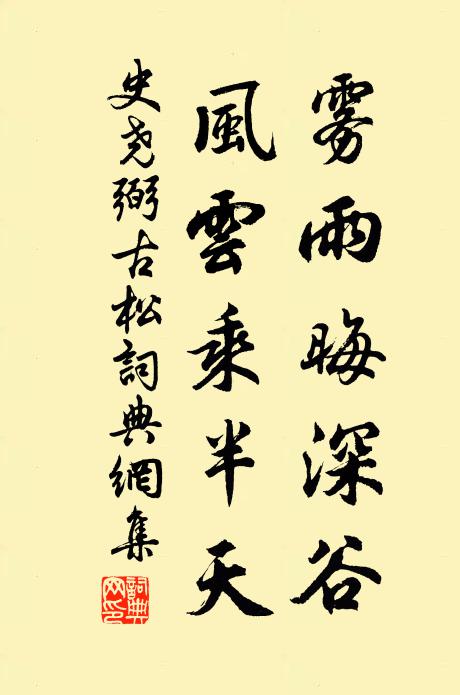 雾雨晦深谷
風雲乘半天
史尧弼古松詞典網集
詞典網印